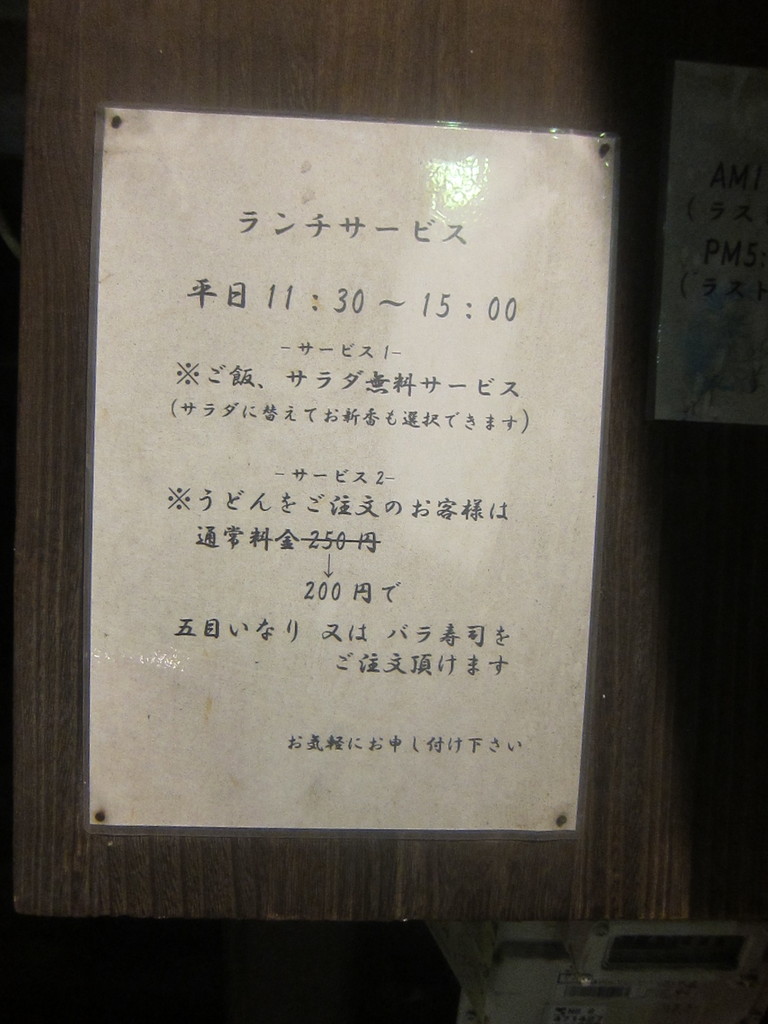 ランチサービス
平日 11：30～15：00
-サービス1-
※ご飯、サラダ無料サービス
(サラダに替えてお新香も選択できます)
-サービス2-
※うどんをご注文のお客様は
通常料金250円
↓
200円で
五目いなり 又は バラ寿司を
ご注文頂けます
お気軽にお申し付け下さい
AM1
(ラス
PM5:
(ラスト